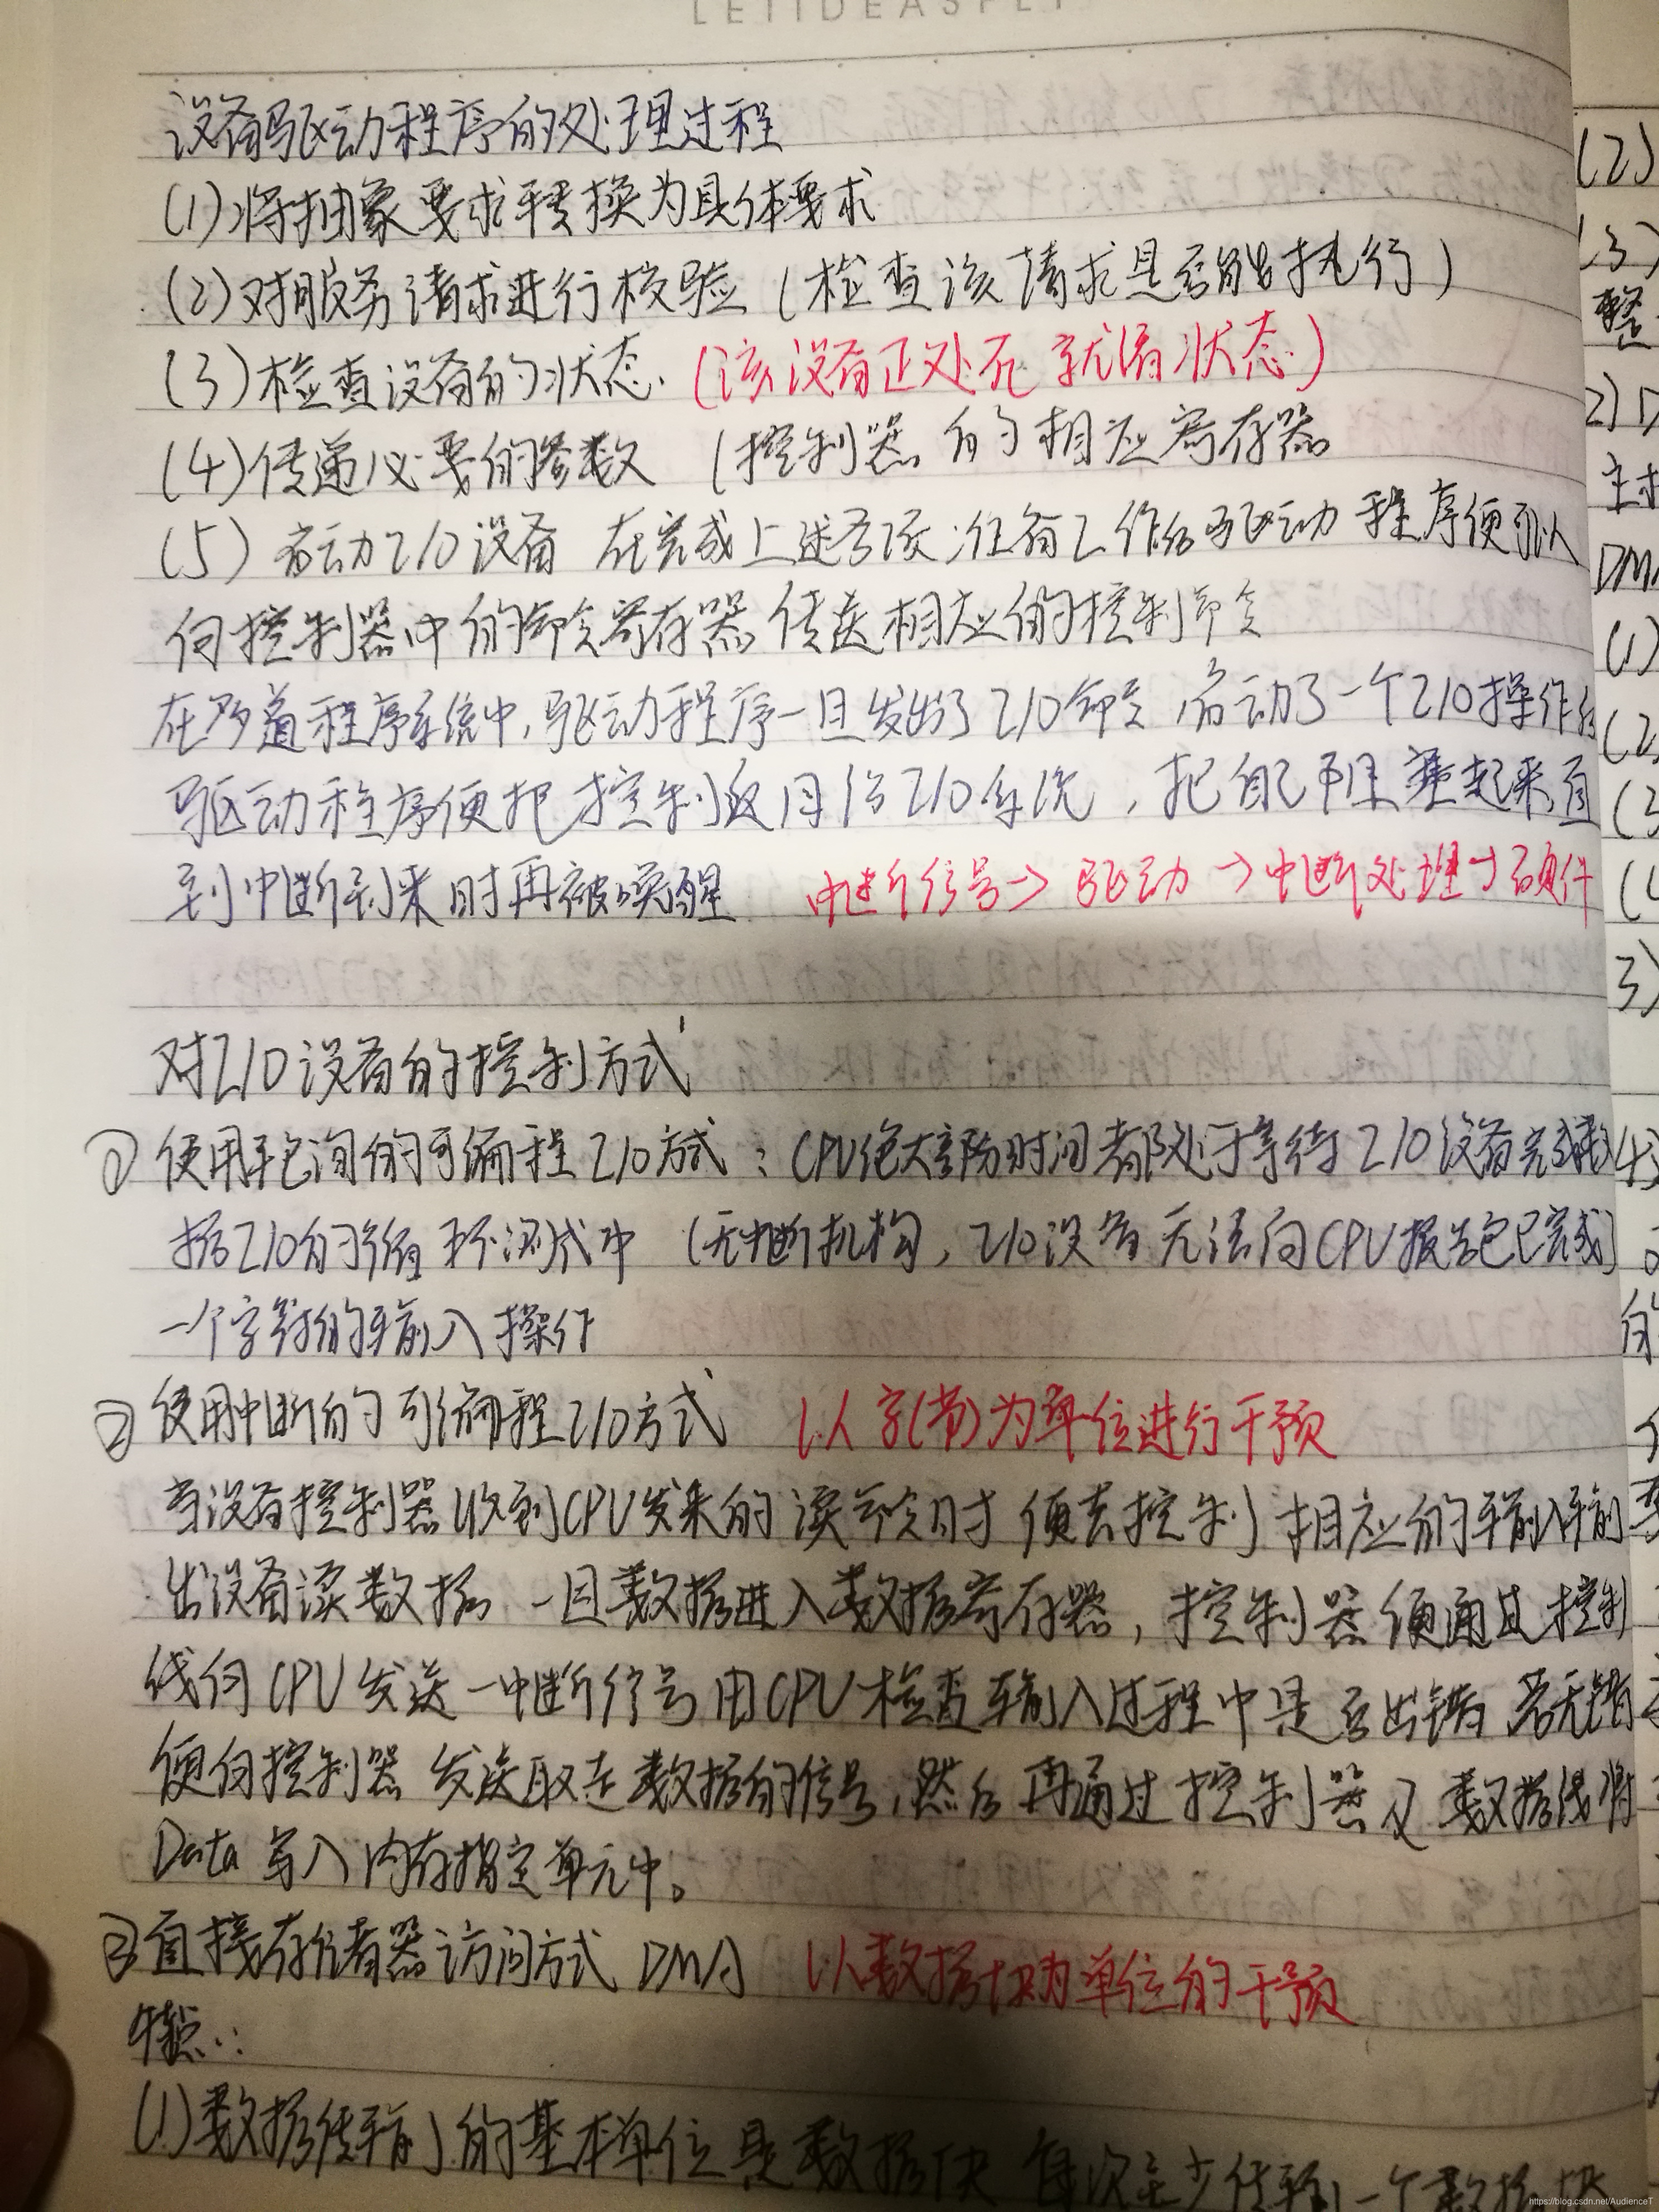 LETIDEASFLY
设备驱动程序的处理过程
(1)将抽象要求转换为具体要求
(2)对服务请求进行校验 (检查该请求是否能执行)
(3)检查设备的状态. (该设备正处于就绪状态)
(4)传递必要的参数 (控制器的相应寄存器
(5) 启动I/O设备 在完成上述各项准备工作后驱动程序便可以
向控制器中的命令寄存器传送相应的控制命令
在多道程序系统中,驱动程序一旦发出了I/O命令,启动了一个I/O操作后
驱动程序便把控制返回给I/O系统,把自己阻塞起来直
到中断到来时再被唤醒 中断信号→驱动→中断处理→硬件
对I/O设备的控制方式
① 使用轮询的可编程I/O方式:CPU绝大部分时间都处于等待I/O设备完成数
据I/O的循环测试中 (无中断机构,I/O设备无法向CPU报告它已完成)
一个字符的输入操作
② 使用中断的可编程I/O方式 以字(节)为单位进行干预
当设备控制器收到CPU发来的读命令时 便去控制相应的输入输
出设备读数据 一旦数据进入数据寄存器,控制器便通过控制
线向CPU发送一中断信号 由CPU检查输入过程中是否出错 若无错
便向控制器发送取走数据的信号,然后再通过控制器及数据线将
Data写入内存指定单元中。
③直接存储器访问方式 DMA 以数据块为单位的干预
特点:
(1)数据传输的基本单位是数据块 每次至少传输一个数据块
(2)
(3)
整
2)
DM
(1)
(2
(3
(4
3)
的
https://blog.csdn.net/AudienceT